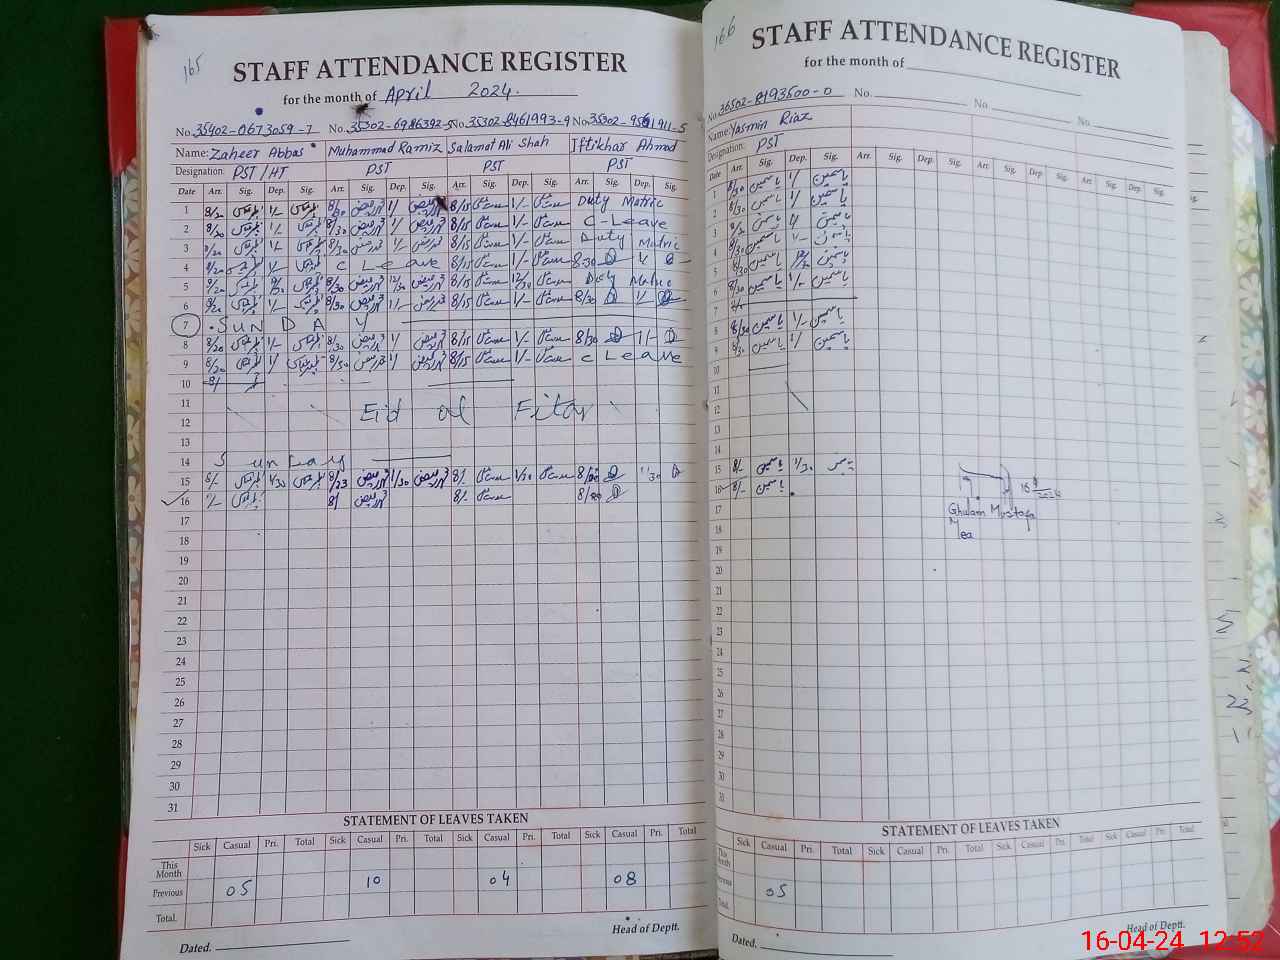 165
STAFF ATTENDANCE REGISTER
for the month of April 2024.
No. 35402-0673059-7 No. 35302-6986392-5 No. 35302-8461993-9 No. 35302-9561911-5
Name: Zaheer Abbas Muhammad Ramiz Salamat Ali Shah Iftikhar Ahmad
Designation: PST/HT PST PST PST
Date Arr. Sig. Dep. Sig. Arr. Sig. Dep. Sig. Arr. Sig. Dep. Sig. Arr. Sig. Dep. Sig.
1 8/20 1/- 8/30 1/ 8/15 1/- Duty Matric
2 8/20 1/- 8/30 1/ 8/15 1/- C-Leave
3 8/20 1/- 8/30 1/- 8/15 1/- Duty Matric
4 8/20 1/- C Leave 8/15 1/- 8-30
5 8/20 12/30 8/30 12/30 8/15 12/30 Duty Matric
6 8/20 1/- 8/30 1/- 8/15 1/- 8/30 1/-
7 SUNDAY
8 8/20 1/- 8/30 1/ 8/15 1/- 8/30 1/-
9 8/20 1/ 8/30 1/ 8/15 1/- C Leave
10 8/
11
12 Eid ul Fitar
13
14 Sunday
15 8/- 1/30 8/23 1/30 8/- 1/30
16 8/ 8/-
17
18
19
20
21
22
23
24
25
26
27
28
29
30
31
STATEMENT OF LEAVES TAKEN
Sick Casual Pri. Total Sick Casual Pri. Total Sick Casual Pri. Total Sick Casual Pri. Total
This Month
Previous 05 10 04 08
Total.
Dated. Head of Deptt.
166
STAFF ATTENDANCE REGISTER
for the month of
No. 36502-8193500-0 No. No. No.
Name: Yasmin Riaz
Designation: PST
Date Arr. Sig. Dep. Sig. Arr. Sig. Dep. Sig. Arr. Sig. Dep. Sig. Arr. Sig. Dep. Sig.
1 8/30 یاسمین 1/ یاسمین
2 8/30 یاسمین 1/- یاسمین
3 8/30 یاسمین 1/ یاسمین
4 8/30 یاسمین 1/- یاسمین
5 8/30 یاسمین 12/30 یاسمین
6 8/30 یاسمین 1/- یاسمین
7
8 8/30 یاسمین 1/- یاسمین
9 8/30 یاسمین 1/ یاسمین
10
11
12
13
14
15 8/- یاسمین 1/30
16 8/- یاسمین
17
18
19
20
21
22
23
24
25
26
27
28
29
30
31
Ghulam Mustafa
Mea
STATEMENT OF LEAVES TAKEN
Sick Casual Pri. Total Sick Casual Pri. Total Sick Casual Pri. Total Sick Casual Pri. Total
This Month
Previous 05
Total.
Dated. Head of Deptt.
16-04-24 12:52